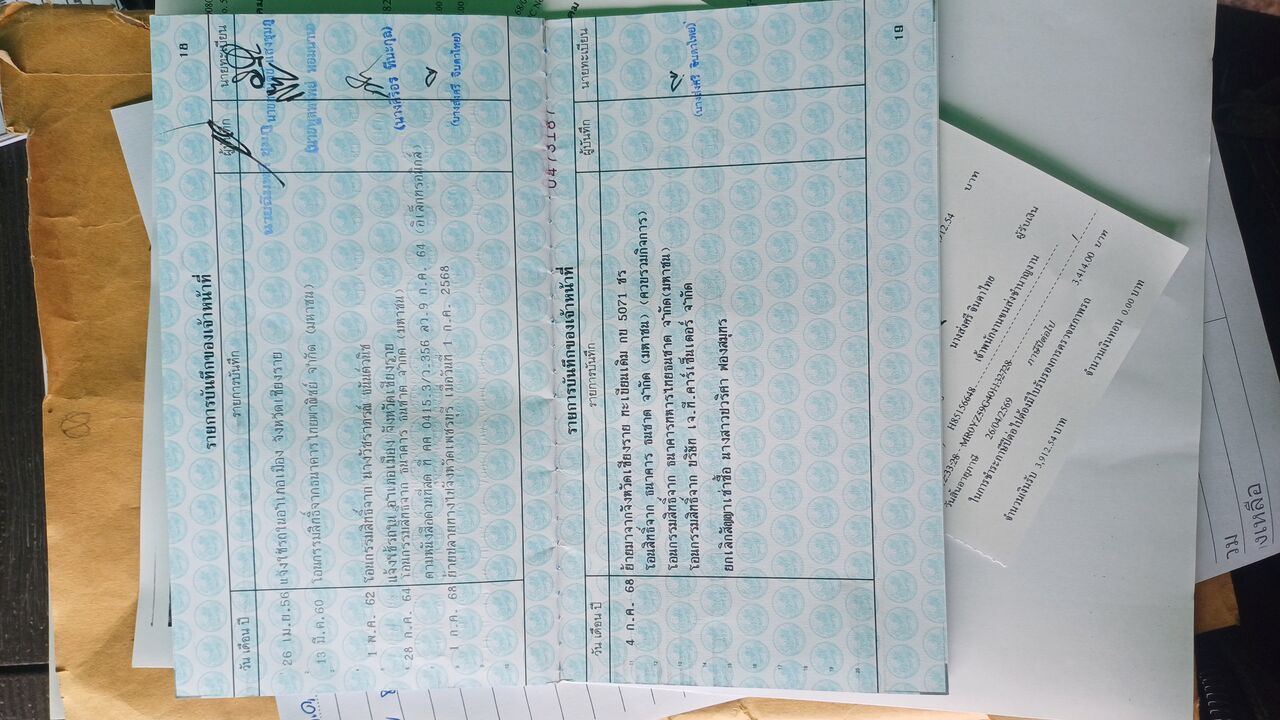 18
รายการบันทึกของเจ้าหน้าที่
วัน เดือน ปี รายการบันทึก ผู้บันทึก นายทะเบียน
26 เม.ย.56 แจ้งใช้รถในอำเภอเมือง จังหวัดเชียงราย
13 มี.ค.60 โอนกรรมสิทธิ์จากธนาคารไทยพาณิชย์ จำกัด (มหาชน)
1 พ.ค. 62 โอนกรรมสิทธิ์จาก นางวัชราภรณ์
แจ้งใช้รถใน อำเภอเมือง จังหวัดเชียงราย
28 ก.ค. 64 โอนกรรมสิทธิ์จาก ธนาคาร ธนชาต จำกัด (มหาชน)
ตามหนังสือด่วนที่สุด ที่ คค 0415.3/ว.356 ลว.9 ก.ค. 64 (อิเล็กทรอนิกส์)
1 ก.ค. 68 ย้ายปลายทางไปจังหวัดเพชรบุรี เมื่อวันที่ 1 ก.ค. 2568
(นางส่งศรี จินดาไทย)
0473187
รายการบันทึกของเจ้าหน้าที่
วัน เดือน ปี รายการบันทึก ผู้บันทึก นายทะเบียน
11 4 ก.ค. 68 ย้ายมาจากจังหวัดเชียงราย ทะเบียนเดิม กข 5071 ชร
12 โอนสิทธิ์จาก ธนาคาร ธนชาต จำกัด (มหาชน) (ควบรวมกิจการ)
13 โอนกรรมสิทธิ์จาก ธนาคารทหารไทยธนชาต จำกัด(มหาชน)
14 โอนกรรมสิทธิ์จาก บริษัท เจ.ที.คาร์เซ็นเตอร์ จำกัด
15
16 ยกเลิกสัญญาเช่าซื้อ นางสาวชวริศา ฟองสมุทร
17
18
19
20
(นางส่งศรี จินดาไทย)
19
912.54 บาท
นางส่งศรี จินดาไทย ผู้รับเงิน
เจ้าพนักงานขนส่งชำนาญงาน
H85156648
MR0YZ59G40H32728
วันสิ้นอายุภาษี 26/04/2569 ภาษีปีต่อไป 3,414.00 บาท
ในการชำระภาษีปีต่อไปต้องมีใบรับรองการตรวจสภาพรถ
จำนวนเงินรับ 3,912.54 บาท จำนวนเงินทอน 0.00 บาท